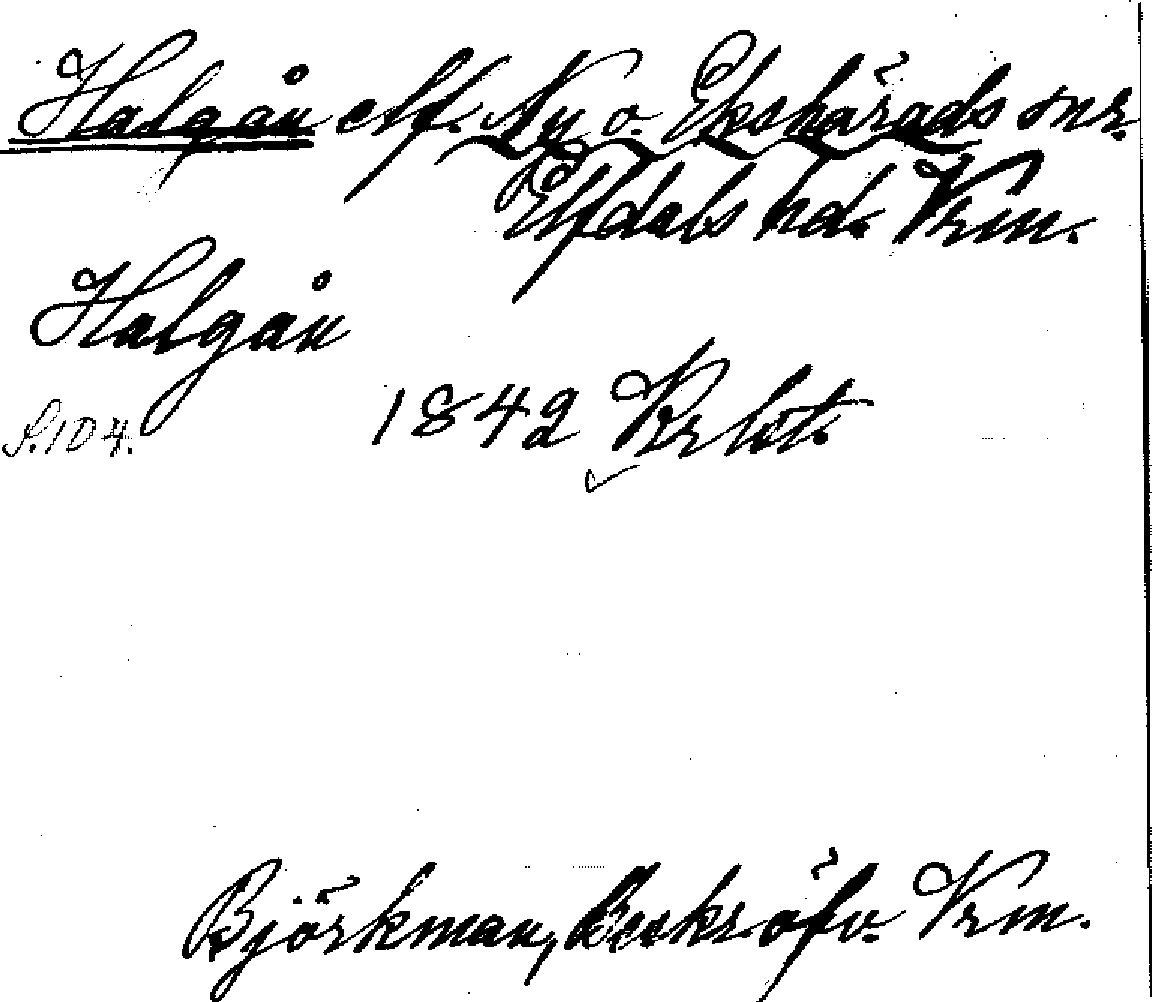 Halgån elf. Ny o. Ekshärads snr.
Elfdals hd. Vrm.
Halgån
S. 104. 1842 Krtbt.
Björkman, Beskr. öfv. Vrm.